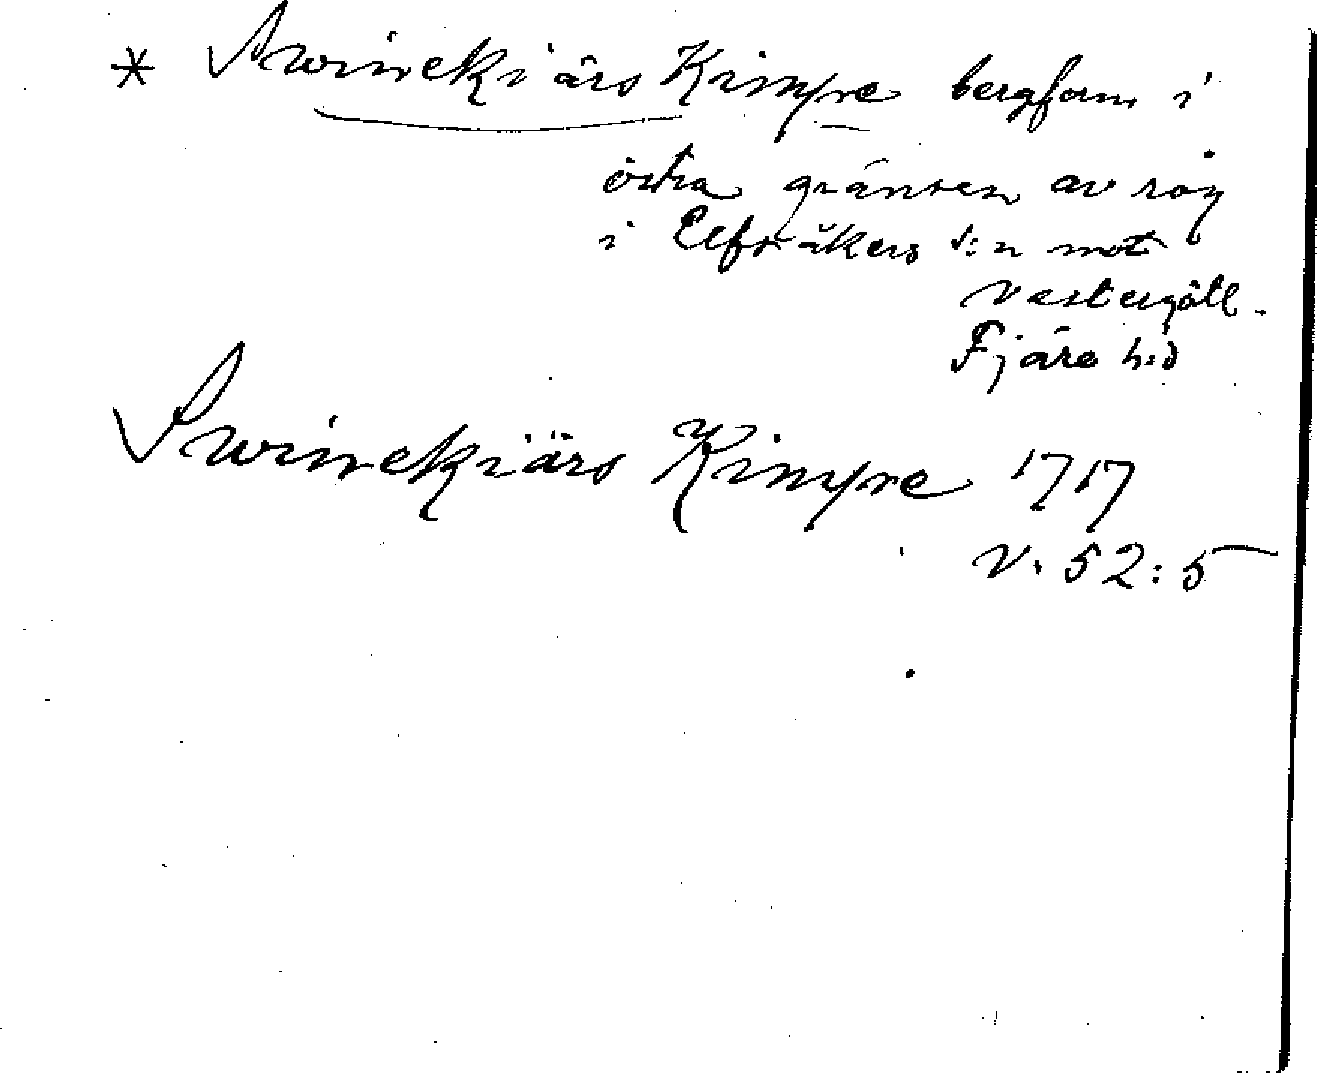 * Swinekiärs Kimpre bergform i
östra gränsen av
i Elfsåkers s:n mot
Vestergötl.
Fjäre h:d
Swinekiärs Kimpre 1717
V. 52:5